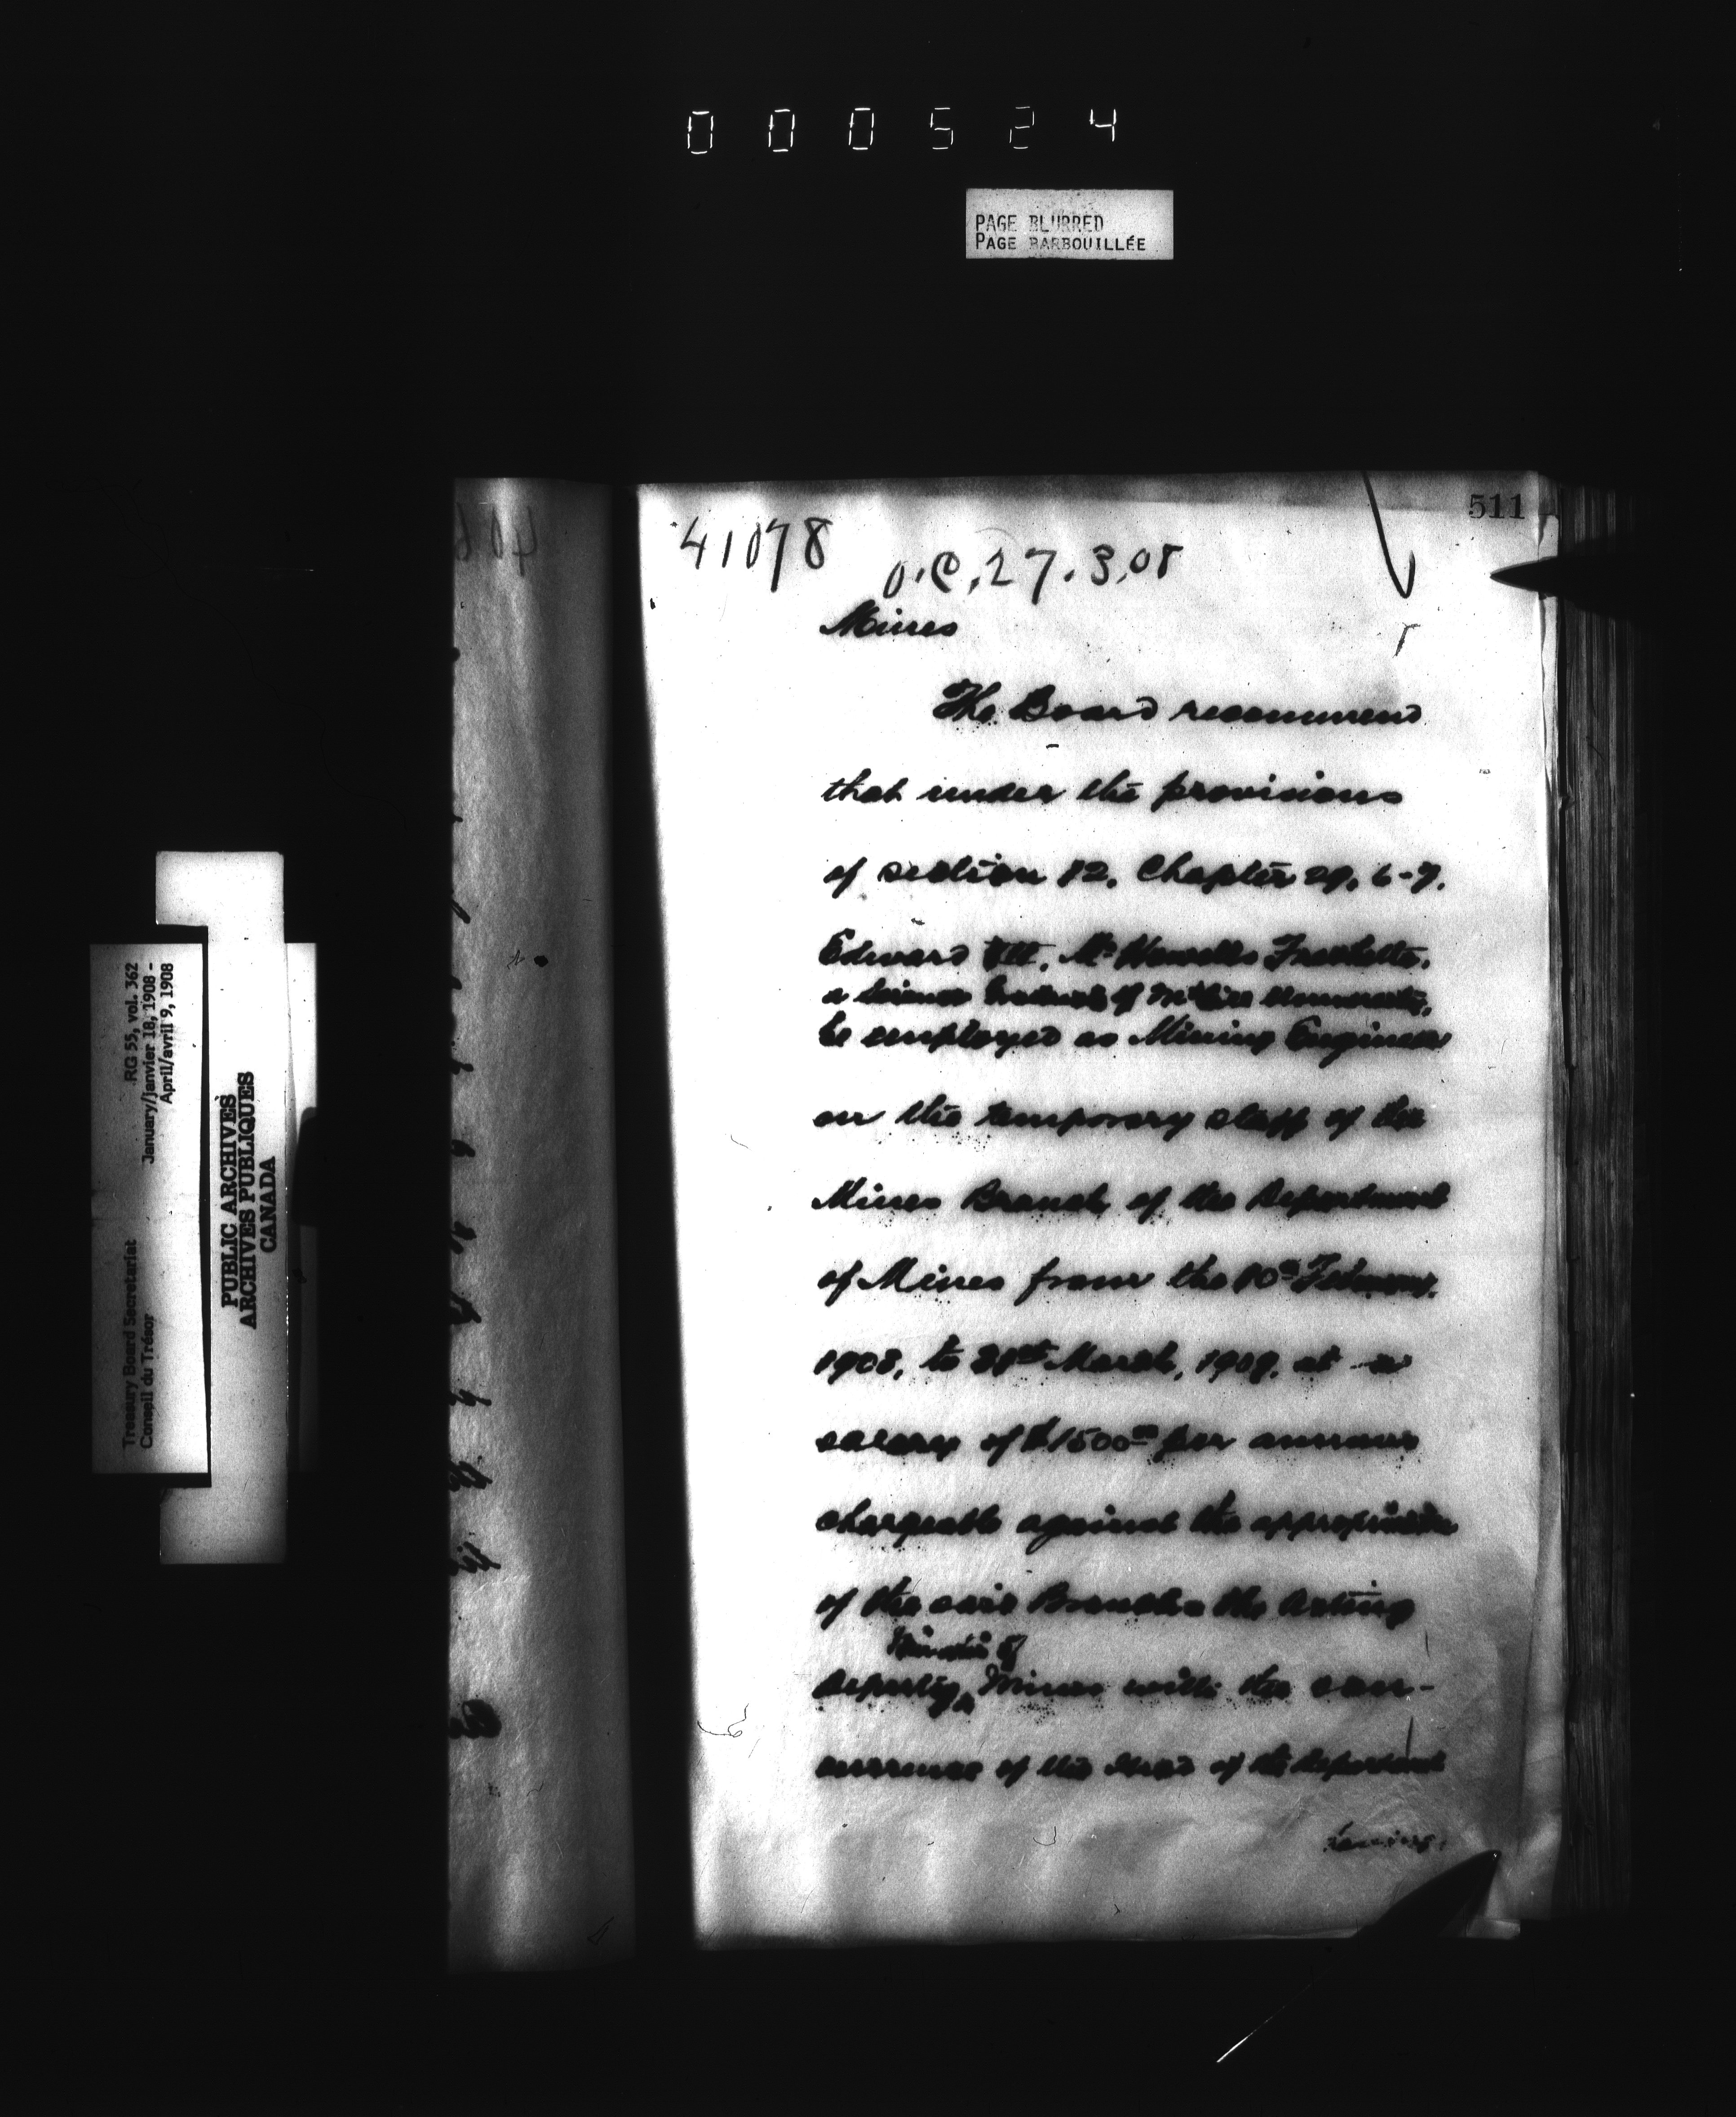 000524
PAGE BLURRED
PAGE BARBOUILLÉE
511
41078
O.C, 27.3.08
Mines
The Board recommend
that under the provisions
of section 12, Chapter 29, 6-7,
Edward Howells Frechette,
a Science Graduate of McGill University,
be employed as Mining Engineer
on the temporary staff of the
Mines Branch of the Department
of Mines from the 10th February,
1908, to 31st March, 1909, at a
salary of $1500 00 per annum
chargeable against the appropriation
of the said Branch the Acting
Minister of
Deputy Mines with the con-
currence of the Head of the Department
Treasury Board Secretariat RG 55, vol. 362
Conseil du Trésor January/janvier 18, 1908 -
April/avril 9, 1908
PUBLIC ARCHIVES
ARCHIVES PUBLIQUES
CANADA